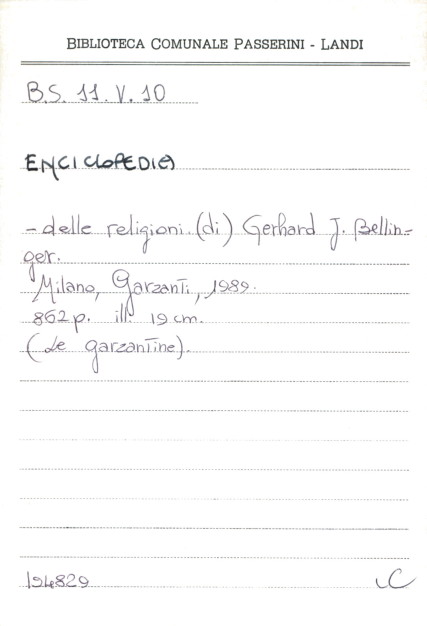 BIBLIOTECA COMUNALE PASSERINI - LANDI
B.S. 11. V. 10
ENCICLOPEDIA
- delle religioni. (di) Gerhard J. Bellin=
ger.
Milano, Garzanti, 1989.
862 p. ill. 19 cm.
(Le garzantine).
194829